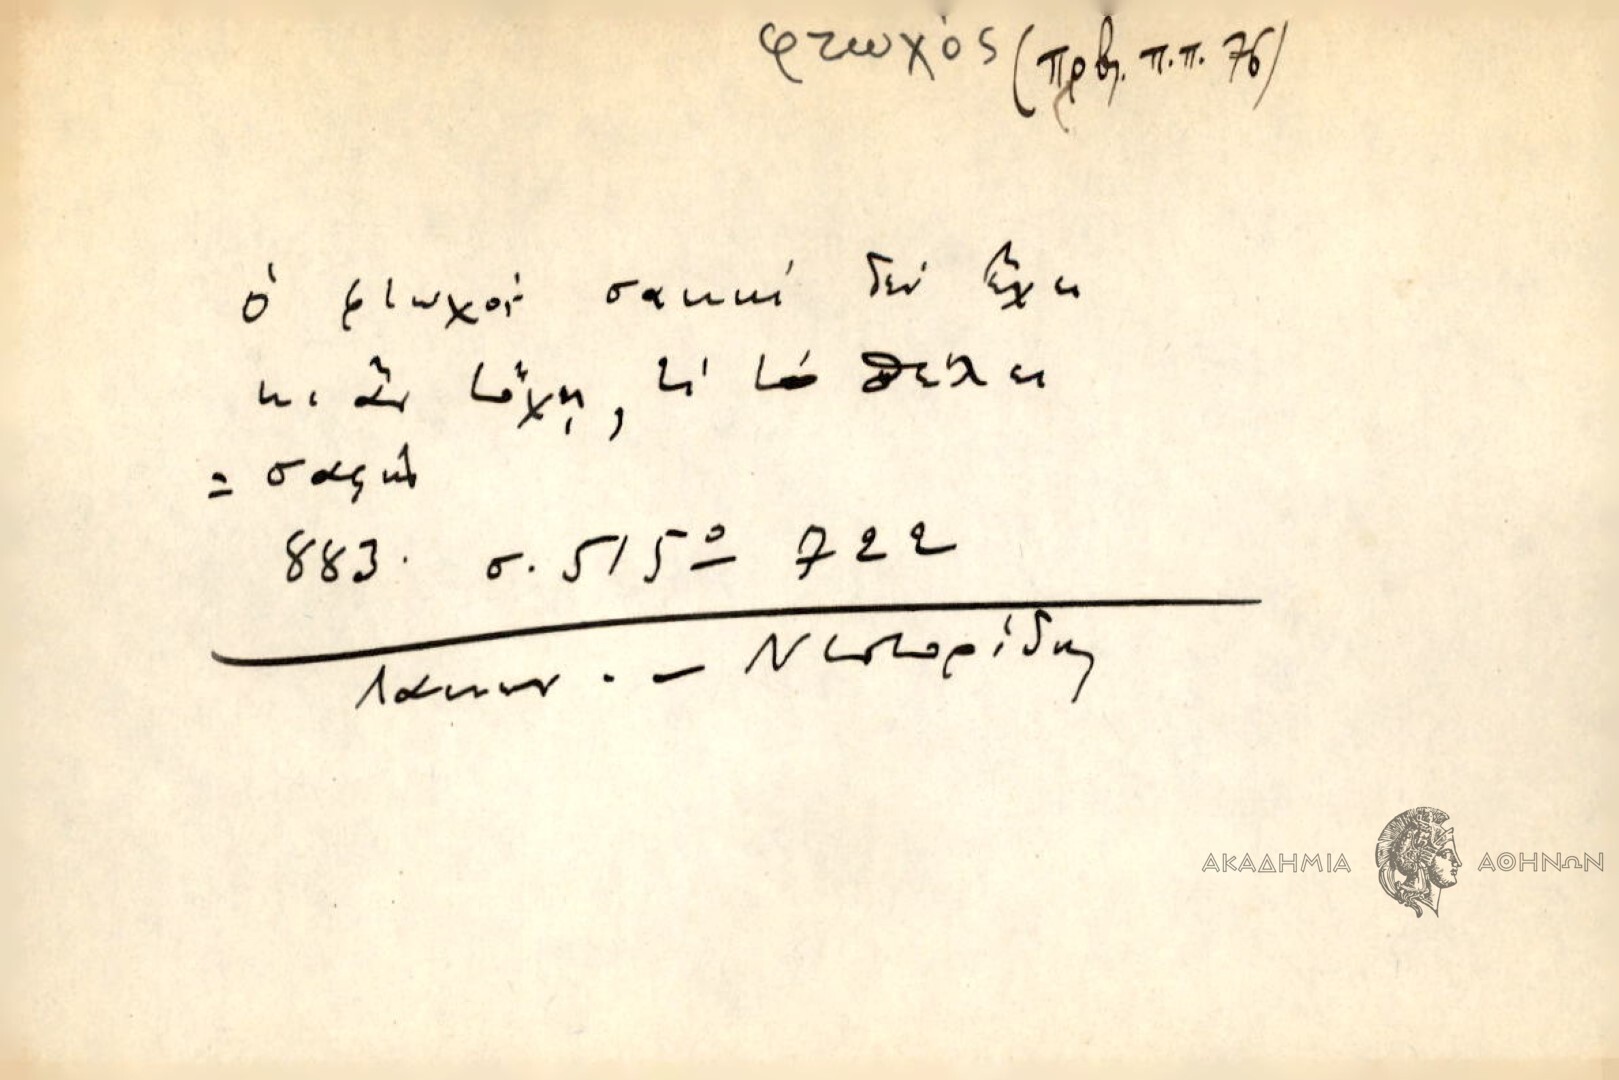 φτωχός (πρβ. π.π. 76)
ὁ φτωχὸς σακκί δέν ἔχει
κι ἄν τὄχῃ, τί τό θέλει
= σαφὲς
883. σ. 515º 722
Λακων. - Νεστορίδης
ΑΚΑΔΗΜΙΑ ΑΘΗΝΩΝ